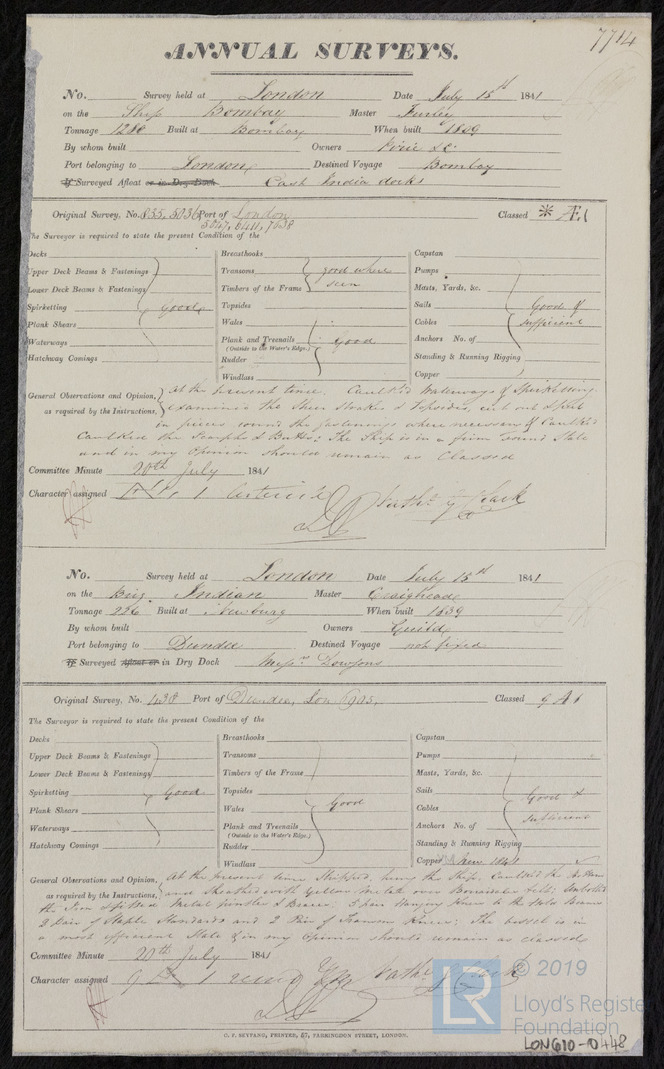 7714
ANNUAL SURVEYS.
No. Survey held at London Date July 15th 1841
on the Ship Bombay Master Furley
Tonnage 1280 Built at Bombay When built 1809
By whom built Owners Pirie &c
Port belonging to London Destined Voyage Bombay
If Surveyed Afloat or in Dry Dock East India docks
Original Survey, No. 5036 Port of London Classed * Æ1
5047, 6411, 7038
The Surveyor is required to state the present Condition of the
Decks Breasthooks Capstan
Upper Deck Beams & Fastenings Transoms good where Pumps
Lower Deck Beams & Fastenings Timbers of the Frame seen Masts, Yards, &c.
Spirketting Good Topsides Sails Good &
Plank Shears Wales Cables sufficient
Waterways Plank and Treenails Good Anchors No. of
(Outside to the Water's Edge.)
Hatchway Comings Rudder Standing & Running Rigging
Windlass Copper
General Observations and Opinion, At the present time Caulked Waterways & Spirketting
as required by the Instructions, examined the Sheer Strakes & Topsides, cut out & put
in pieces round the fastenings where necessary & Caulked
Caulked the Scarphs & Butts: The Ship is in a firm sound State
and in my Opinion should remain as Classed
Committee Minute 20th July 1841
Character assigned 1 Nathl. Clark
No. Survey held at London Date July 15th 1841
on the Brig Indian Master Craighead
Tonnage 226 Built at Newburg When built 1839
By whom built Owners Guild
Port belonging to Dundee Destined Voyage not fixed
If Surveyed Afloat or in Dry Dock Messrs Dowsons
Original Survey, No. 438 Port of Dundee, Lon 6905 Classed 9 A 1
The Surveyor is required to state the present Condition of the
Decks Breasthooks Capstan
Upper Deck Beams & Fastenings Transoms Pumps
Lower Deck Beams & Fastenings Timbers of the Frame Masts, Yards, &c.
Spirketting Good Topsides Sails Good &
Plank Shears Wales Good Cables sufficient
Waterways Plank and Treenails Anchors No. of
(Outside to the Water's Edge.)
Hatchway Comings Rudder Standing & Running Rigging
Windlass Copper New 1841
General Observations and Opinion, At the present time Stripped, the Ship, Caulked the
as required by the Instructions, and Sheathed with Yellow Metal over felt;
the Iron & fitted Metal Pintles & Braces. 5 pair Hanging Knees to the Hold Beams
2 Pair of Staple Standards and 2 Pair of Transom Knees; The vessel is in
a most efficient State & in my Opinion should remain as classed
Committee Minute 20th July 1841
Character assigned 9 A 1 Nathl. Clark
C. F. SEYFANG, PRINTED, 57, FARRINGDON STREET, LONDON.
© 2019
LR
Lloyd's Register
Foundation
LON610-0448